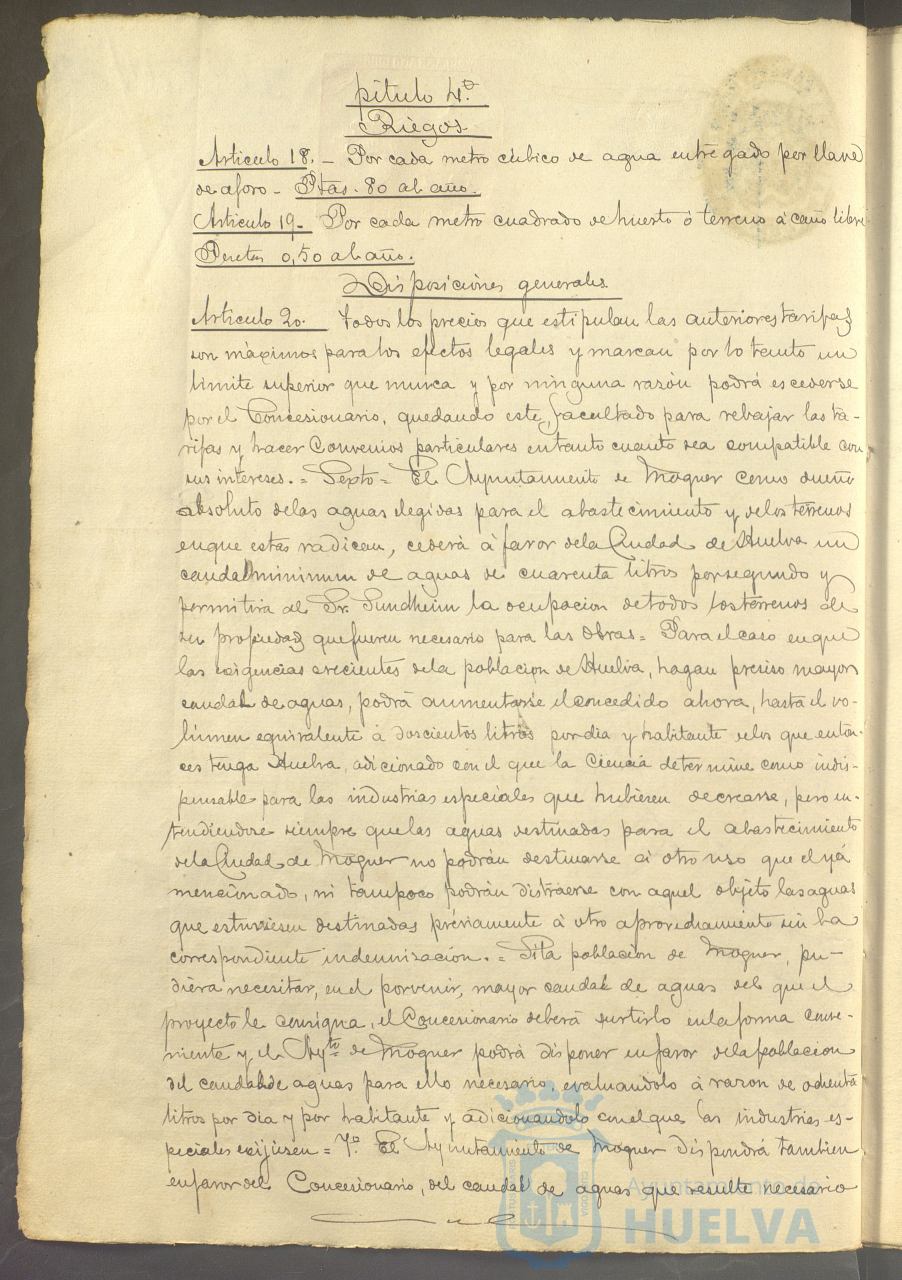 pitulo 4.º
Riegos
Articulo 18. - Por cada metro cúbico de agua entregado por llave
de aforo - Ptas. 80 al año.
Articulo 19- Por cada metro cuadrado de huerto ó terreno á caño libre
Pesetas 0,50 al año.
Disposiciones generales
Articulo 20. Todos los precios que estipulan las anteriores tarifas
son máximos para los efectos legales y marcan por lo tanto un
limite superior que nunca y por ninguna razón podrá escederse
por el Concesionario, quedando este facultado para rebajar las ta-
rifas y hacer Convenios particulares en tanto cuanto sea compatible con
sus intereses. = Sexto = El Ayuntamiento de Moguer como dueño
absoluto de las aguas elegidas para el abastecimiento y de los terrenos
en que estas radican, cederá á favor de la Ciudad de Huelva un
caudal mínimum de aguas de cuarenta litros por segundo y
permitirá al Sr. Sundheim la ocupacion de todos los terrenos de
su propiedad que fueren necesario para las obras = Para el caso en que
las exigencias crecientes de la poblacion de Huelva, hagan preciso mayor
caudal de aguas, podrá aumentarse el concedido ahora, hasta el vo-
lúmen equivalente á doscientos litros por dia y habitante de los que enton-
ces tenga Huelva, adicionado con el que la Ciencia determine como indis-
pensable para las industrias especiales que hubieren de crearse, pero en-
tendiendose siempre que las aguas destinadas para el abastecimiento
de la Ciudad de Moguer no podrán destinarse á otro uso que el yá
mencionado, ni tampoco podrán distraerse con aquel objeto las aguas
que estuviesen destinadas préviamente á otro aprovechamiento sin la
correspondiente indemnización. = Si la poblacion de Moguer, pu-
diera necesitar, en el porvenir, mayor caudal de aguas del que el
proyecto le consigna, el Concesionario deberá surtirlo en la forma conve-
niente y el Ayto. de Moguer podrá disponer en favor de la poblacion
del caudal de aguas para ello necesario, evaluandolo á razon de ochenta
litros por dia y por habitante y adicionandolo con el que las industrias es-
peciales exijiesen = 7º. El Ayuntamiento de Moguer dispondrá tambien
en favor del Concesionario, del caudal de aguas que resulte necesario
Ayuntamiento de
HUELVA